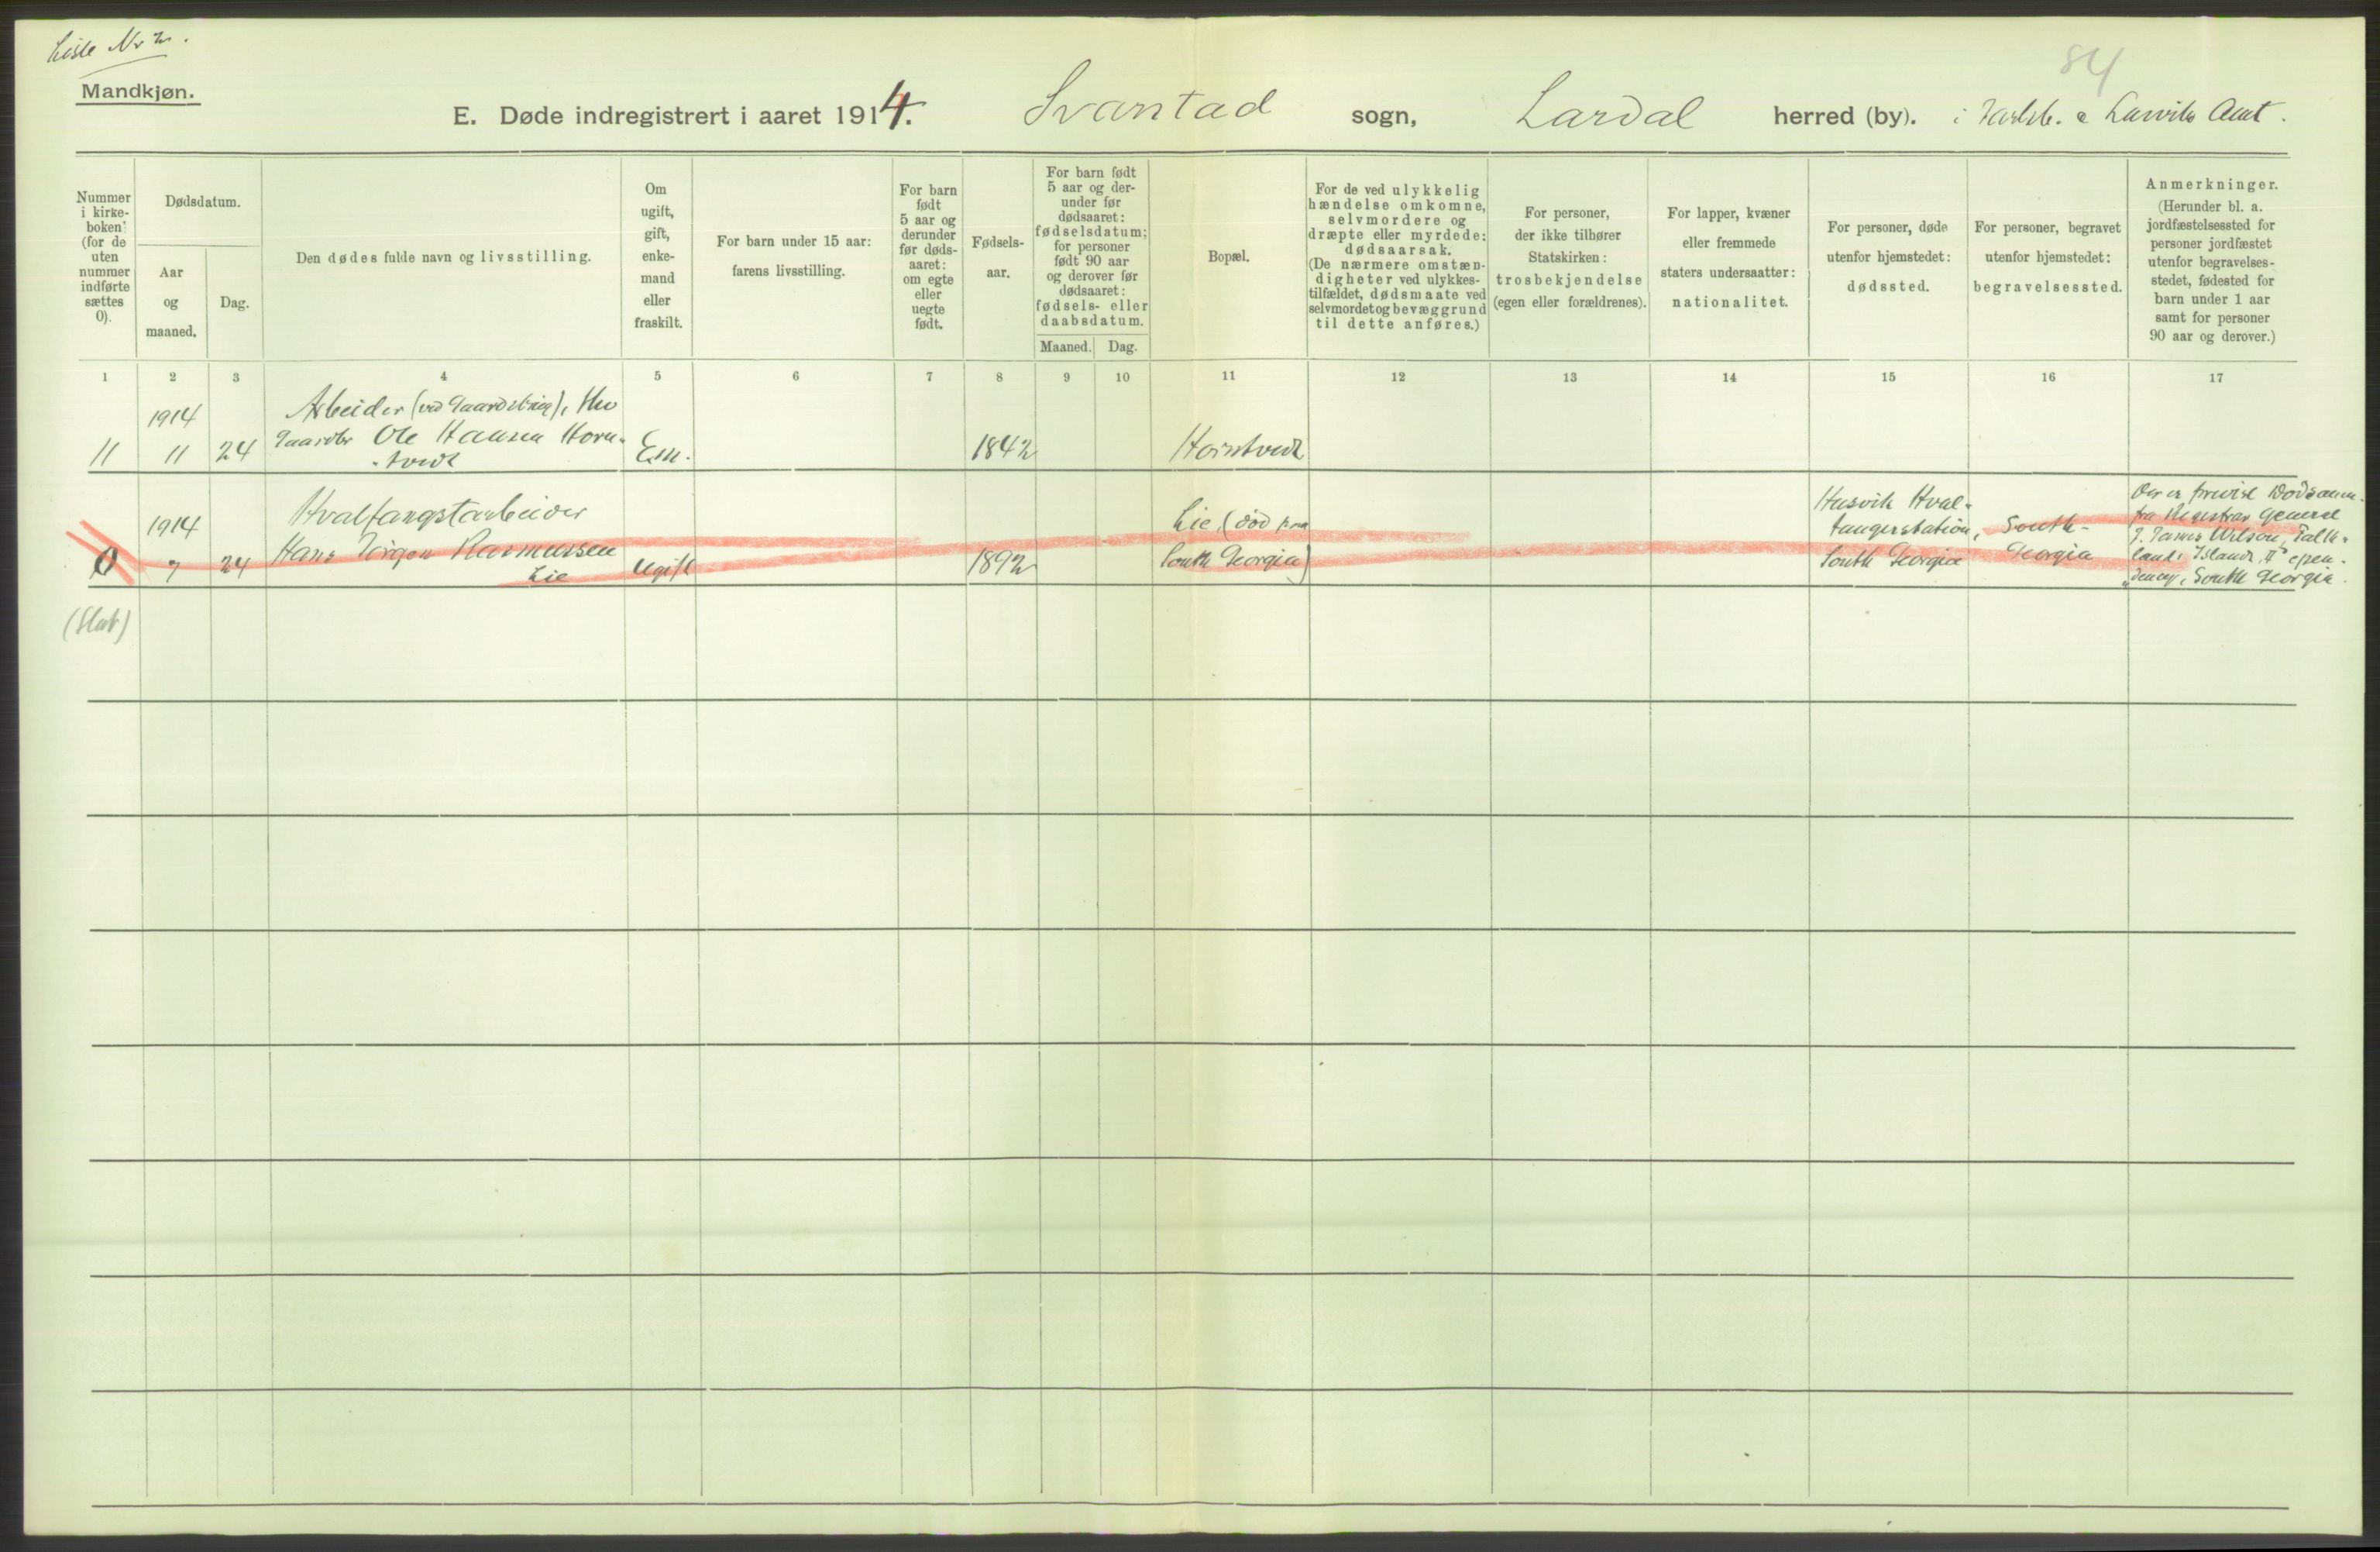 Liste Nr 2.
Mandkjøn.
84
E. Døde indregistrert i aaret 1914. Svarstad sogn, Lardal herred (by). i Jarlsb. o Larviks Amt.
Nummer
i kirke-
boken
(for de
uten
nummer
indførte
sættes
0).
Dødsdatum.
Aar
og
maaned.
Dag.
Den dødes fulde navn og livsstilling.
Om
ugift,
gift,
enke-
mand
eller
fraskilt.
For barn under 15 aar:
farens livsstilling.
For barn
født
5 aar og
derunder
før døds-
aaret:
om egte
eller
uegte
født.
Fødsels-
aar.
For barn født
5 aar og der-
under før
dødsaaret:
fødselsdatum;
for personer
født 90 aar
og derover før
dødsaaret:
fødsels- eller
daabsdatum.
Maaned. Dag.
Bopæl.
For de ved ulykkelig
hændelse omkomne,
selvmordere og
dræpte eller myrdede:
dødsaarsak.
(De nærmere omstæn-
digheter ved ulykkes-
tilfældet, dødsmaate ved
selvmordet og bevæggrund
til dette anføres.)
For personer,
der ikke tilhører
Statskirken:
trosbekjendelse
(egen eller forældrenes).
For lapper, kvæner
eller fremmede
staters undersaatter:
nationalitet.
For personer, døde
utenfor hjemstedet:
dødssted.
For personer, begravet
utenfor hjemstedet:
begravelsessted.
Anmerkninger.
(Herunder bl. a.
jordfæstelsessted for
personer jordfæstet
utenfor begravelses-
stedet, fødested for
barn under 1 aar
samt for personer
90 aar og derover.)
1 2 3 4 5 6 7 8 9 10 11 12 13 14 15 16 17
1914
11 11 24
Arbeider (ved Gaardsbrug),
Gaardbr Ole Hansen Horn-
tvedt
Em.
1842
Horntvedt
1914
0 7 24
Hvalfangstarbeider
Hans Jørgen Rasmussen
Lie
Ugift
1892
Lie, (død paa
South Georgia)
Husvik Hval-
fangerstation,
South Georgia
South-
Georgia
Der er forevist Dødsanm.
fra Registrar General
J. James Wilson, Falk-
lands Islands, Depen-
dency, South Georgia.
(Slut)